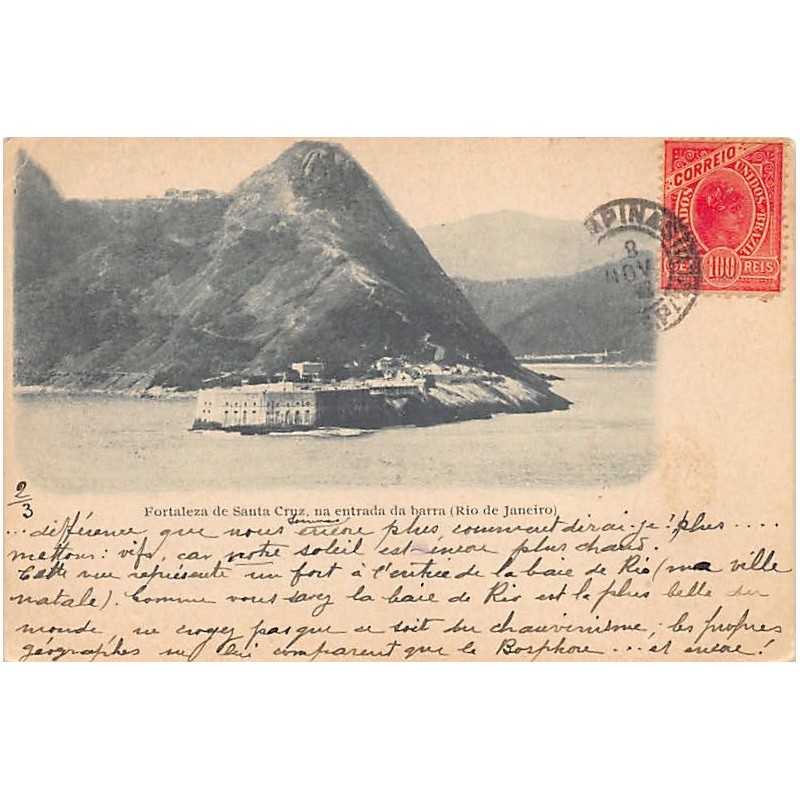 CORREIO
ESTADOS UNIDOS DO BRAZIL
100 REIS
8
NOV
Fortaleza de Santa Cruz, na entrada da barra (Rio de Janeiro)
2/3
...différence que nous sommes encore plus comment dirai-je? plus ....
mettons: vifs, car notre soleil est encore plus chaud.
Cette vue représente un fort à l'entrée de la baie de Rio (ma ville
natale). Comme vous savez la baie de Rio est le plus belle du
monde, ne croyez pas que ce soit du chauvinisme; les propres
géographes ne lui comparent que le Bosphore ... et encore!